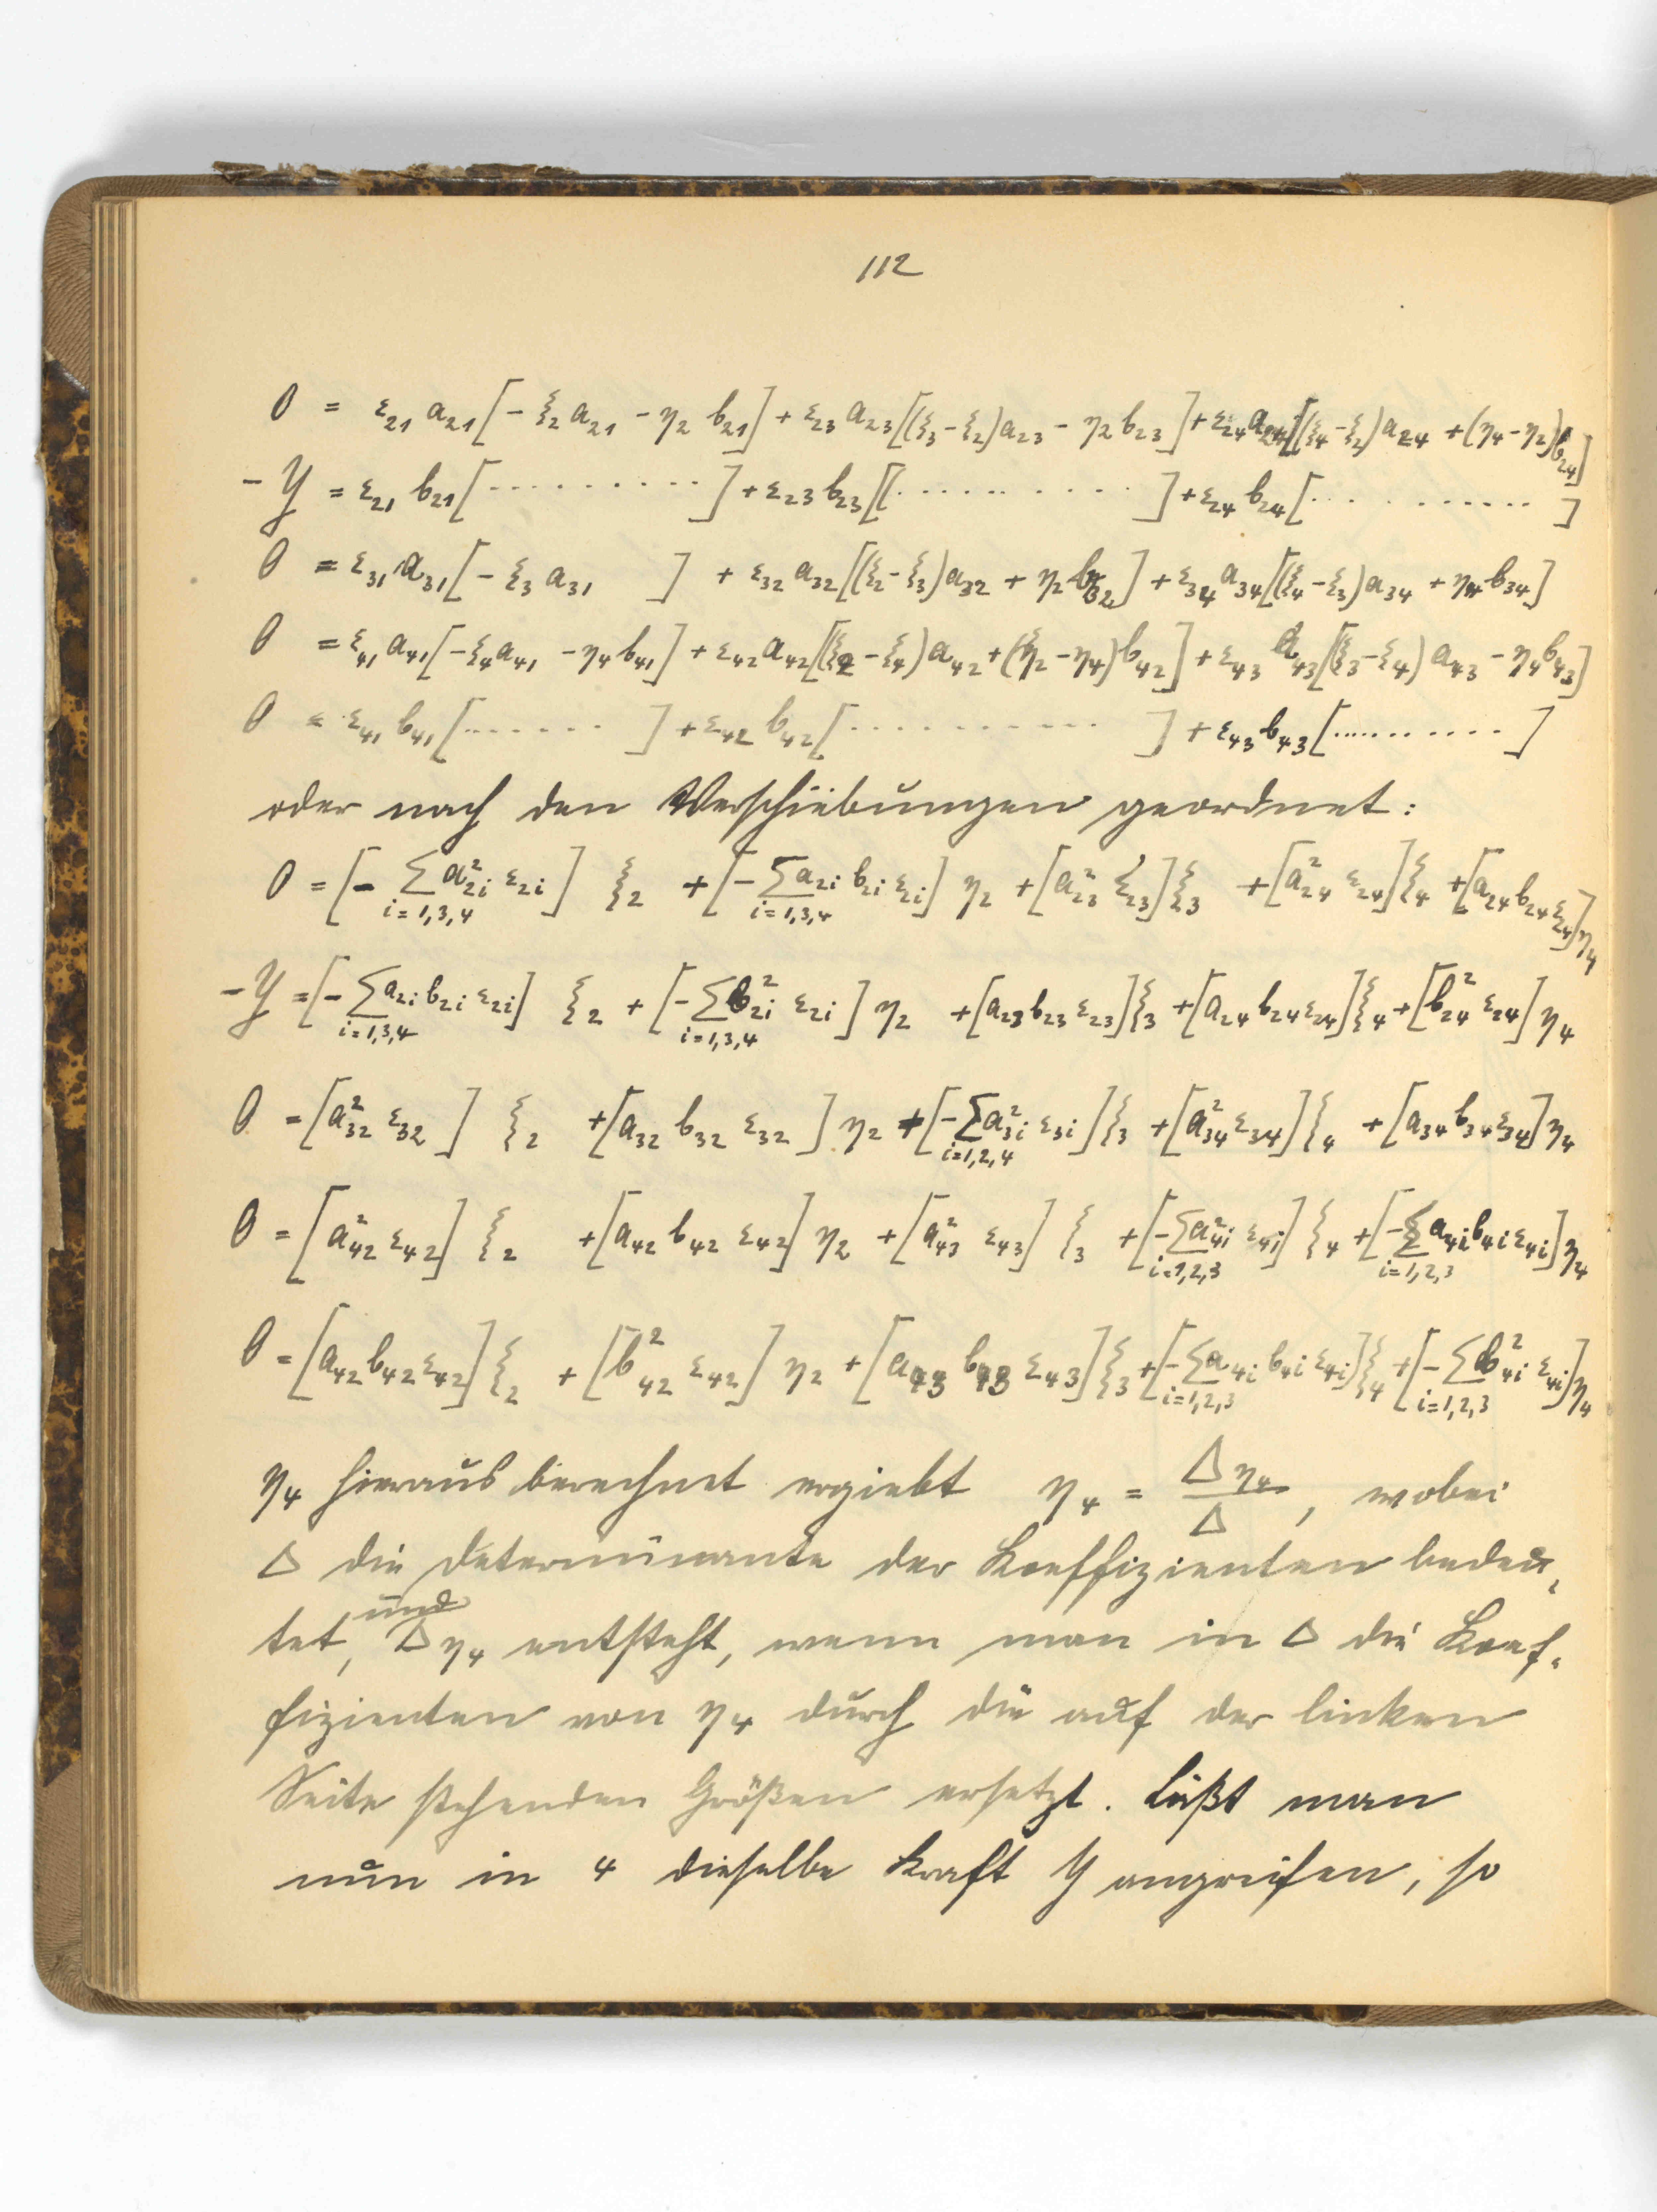 112
0 = ε₂₁ a₂₁ [- ξ₂ a₂₁ - η₂ b₂₁] + ε₂₃ a₂₃ [(ξ₃ - ξ₂) a₂₃ - η₂ b₂₃] + ε₂₄ a₂₄ [(ξ₄ - ξ₂) a₂₄ + (η₄ - η₂) b₂₄]
- Y = ε₂₁ b₂₁ [..........] + ε₂₃ b₂₃ [(..........] + ε₂₄ b₂₄ [..........]
0 = ε₃₁ a₃₁ [- ξ₃ a₃₁ ] + ε₃₂ a₃₂ [(ξ₂ - ξ₃) a₃₂ + η₂ b₃₂] + ε₃₄ a₃₄ [(ξ₄ - ξ₃) a₃₄ + η₄ b₃₄]
0 = ε₄₁ a₄₁ [- ξ₄ a₄₁ - η₄ b₄₁] + ε₄₂ a₄₂ [(ξ₂ - ξ₄) a₄₂ + (η₂ - η₄) b₄₂] + ε₄₃ a₄₃ [(ξ₃ - ξ₄) a₄₃ - η₄ b₄₃]
0 = ε₄₁ b₄₁ [.......] + ε₄₂ b₄₂ [..........] + ε₄₃ b₄₃ [..........]
oder nach den Verschiebungen geordnet:
0 = [- Σ a²₂ᵢ ε₂ᵢ] ξ₂ + [- Σ a₂ᵢ b₂ᵢ ε₂ᵢ] η₂ + [a²₂₃ ε₂₃] ξ₃ + [a²₂₄ ε₂₄] ξ₄ + [a₂₄ b₂₄ ε₂₄] η₄
i = 1,3,4 i = 1,3,4
- Y = [- Σ a₂ᵢ b₂ᵢ ε₂ᵢ] ξ₂ + [- Σ b²₂ᵢ ε₂ᵢ] η₂ + [a₂₃ b₂₃ ε₂₃] ξ₃ + [a₂₄ b₂₄ ε₂₄] ξ₄ + [b²₂₄ ε₂₄] η₄
i = 1,3,4 i = 1,3,4
0 = [a²₃₂ ε₃₂] ξ₂ + [a₃₂ b₃₂ ε₃₂] η₂ + [- Σ a²₃ᵢ ε₃ᵢ] ξ₃ + [a²₃₄ ε₃₄] ξ₄ + [a₃₄ b₃₄ ε₃₄] η₄
i = 1,2,4
0 = [a²₄₂ ε₄₂] ξ₂ + [a₄₂ b₄₂ ε₄₂] η₂ + [a²₄₃ ε₄₃] ξ₃ + [- Σ a²₄ᵢ ε₄ᵢ] ξ₄ + [- Σ a₄ᵢ b₄ᵢ ε₄ᵢ] η₄
i = 1,2,3 i = 1,2,3
0 = [a₄₂ b₄₂ ε₄₂] ξ₂ + [b²₄₂ ε₄₂] η₂ + [a₄₃ b₄₃ ε₄₃] ξ₃ + [- Σ a₄ᵢ b₄ᵢ ε₄ᵢ] ξ₄ + [- Σ b²₄ᵢ ε₄ᵢ] η₄
i = 1,2,3 i = 1,2,3
η₄ hieraus berechnet ergiebt η₄ = Δη₄ / Δ, wobei
Δ die Determinante der Koeffizienten bedeu-
tet, und Δη₄ entsteht, wenn man in Δ die Koef-
fizienten von η₄ durch die auf der linken
Seite stehenden Größen ersetzt. Läßt man
nun in 4 dieselbe Kraft Y angreifen, so